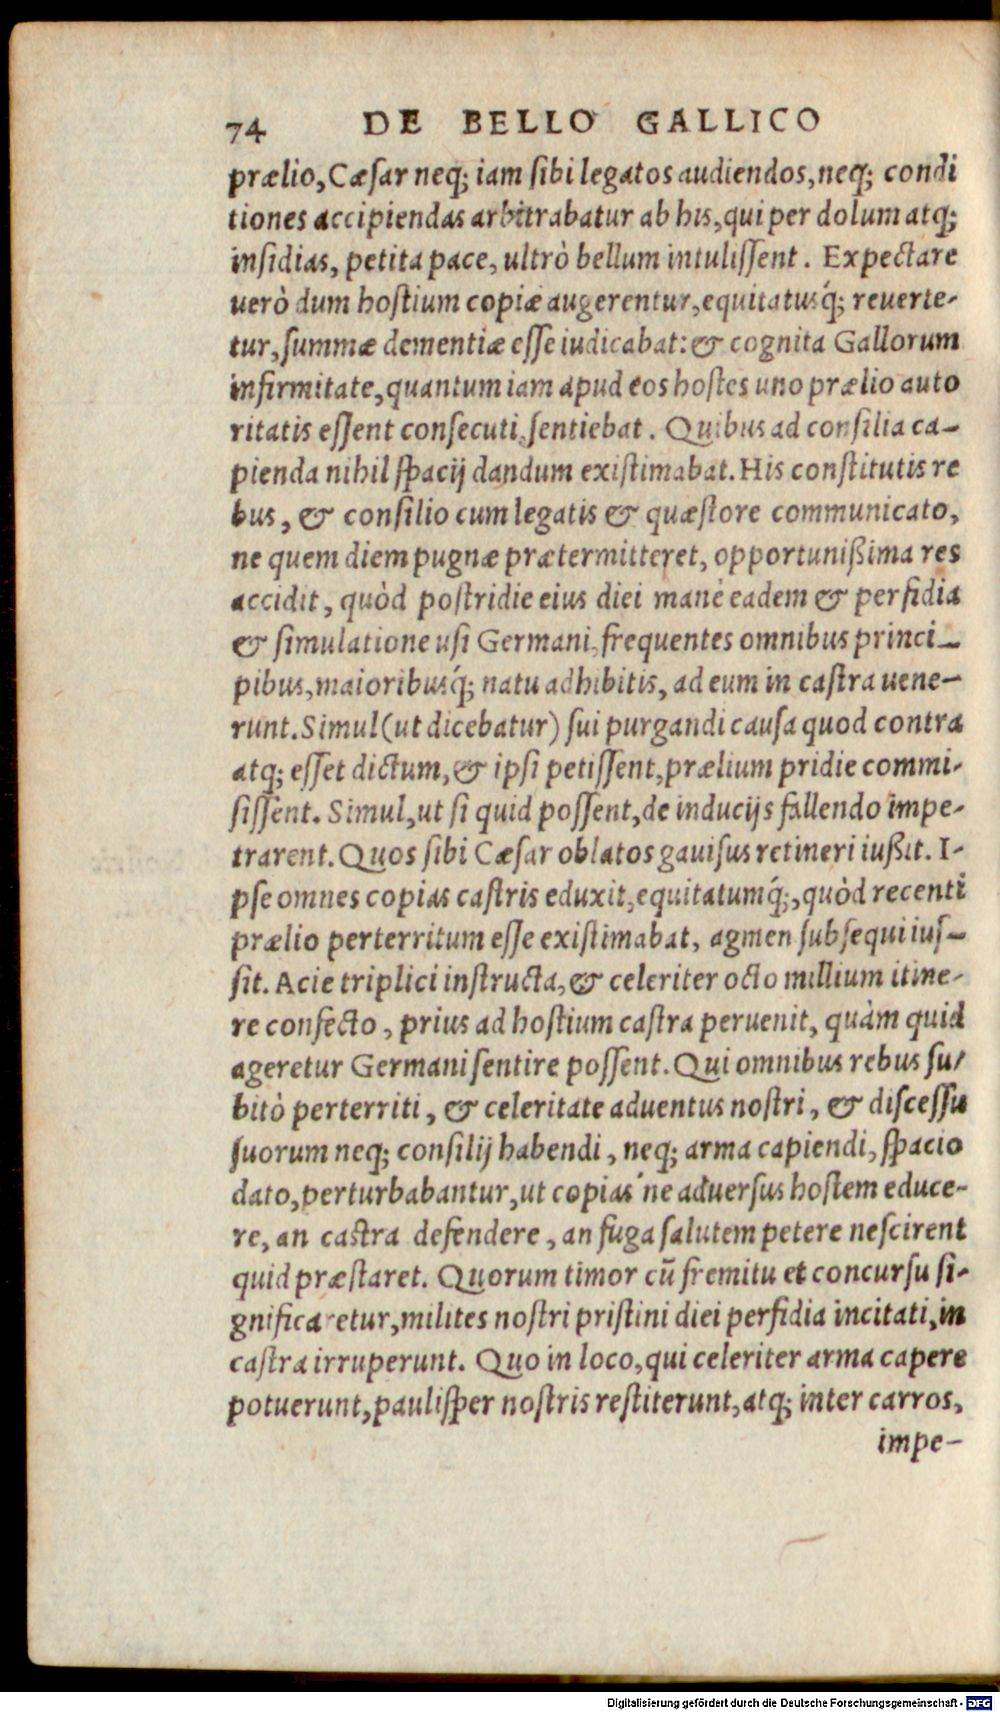 74 DE BELLO GALLICO
prælio, Cæſar neq; iam ſibi legatos audiendos, neq; condi
tiones accipiendas arbitrabatur ab his, qui per dolum atq;
inſidias, petita pace, ultrò bellum intuliſſent. Expectare
uerò dum hoſtium copiæ augerentur, equitatusq́; reuerte-
tur, ſummæ dementiæ eſſe iudicabat: & cognita Gallorum
infirmitate, quantum iam apud eos hoſtes uno prælio auto
ritatis eſſent conſecuti, ſentiebat. Quibus ad conſilia ca-
pienda nihil ſpacij dandum exiſtimabat. His conſtitutis re
bus, & conſilio cum legatis & quæſtore communicato,
ne quem diem pugnæ prætermitteret, opportunißima res
accidit, quòd poſtridie eius diei manè eadem & perfidia
& ſimulatione uſi Germani, frequentes omnibus princi-
pibus, maioribusq́; natu adhibitis, ad eum in caſtra uene-
runt. Simul (ut dicebatur) ſui purgandi cauſa quod contra
atq; eſſet dictum, & ipſi petiſſent, prælium pridie commi-
ſiſſent. Simul, ut ſi quid poſſent, de inducijs fallendo impe-
trarent. Quos ſibi Cæſar oblatos gauiſus retineri iußit. I-
pſe omnes copias caſtris eduxit, equitatumq́;, quòd recenti
prælio perterritum eſſe exiſtimabat, agmen ſubſequi iuſ-
ſit. Acie triplici inſtructa, & celeriter octo millium itine-
re confecto, prius ad hoſtium caſtra peruenit, quàm quid
ageretur Germani ſentire poſſent. Qui omnibus rebus ſu-
bitò perterriti, & celeritate aduentus noſtri, & diſceſſu
ſuorum neq; conſilij habendi, neq; arma capiendi, ſpacio
dato, perturbabantur, ut copias ne aduerſus hoſtem educe-
re, an caſtra defendere, an fuga ſalutem petere neſcirent
quid præſtaret. Quorum timor cũ fremitu et concurſu ſi-
gnificaretur, milites noſtri priſtini diei perfidia incitati, in
caſtra irruperunt. Quo in loco, qui celeriter arma capere
potuerunt, pauliſper noſtris reſtiterunt, atq; inter carros,
impe-
Digitalisierung gefördert durch die Deutsche Forschungsgemeinschaft - DFG